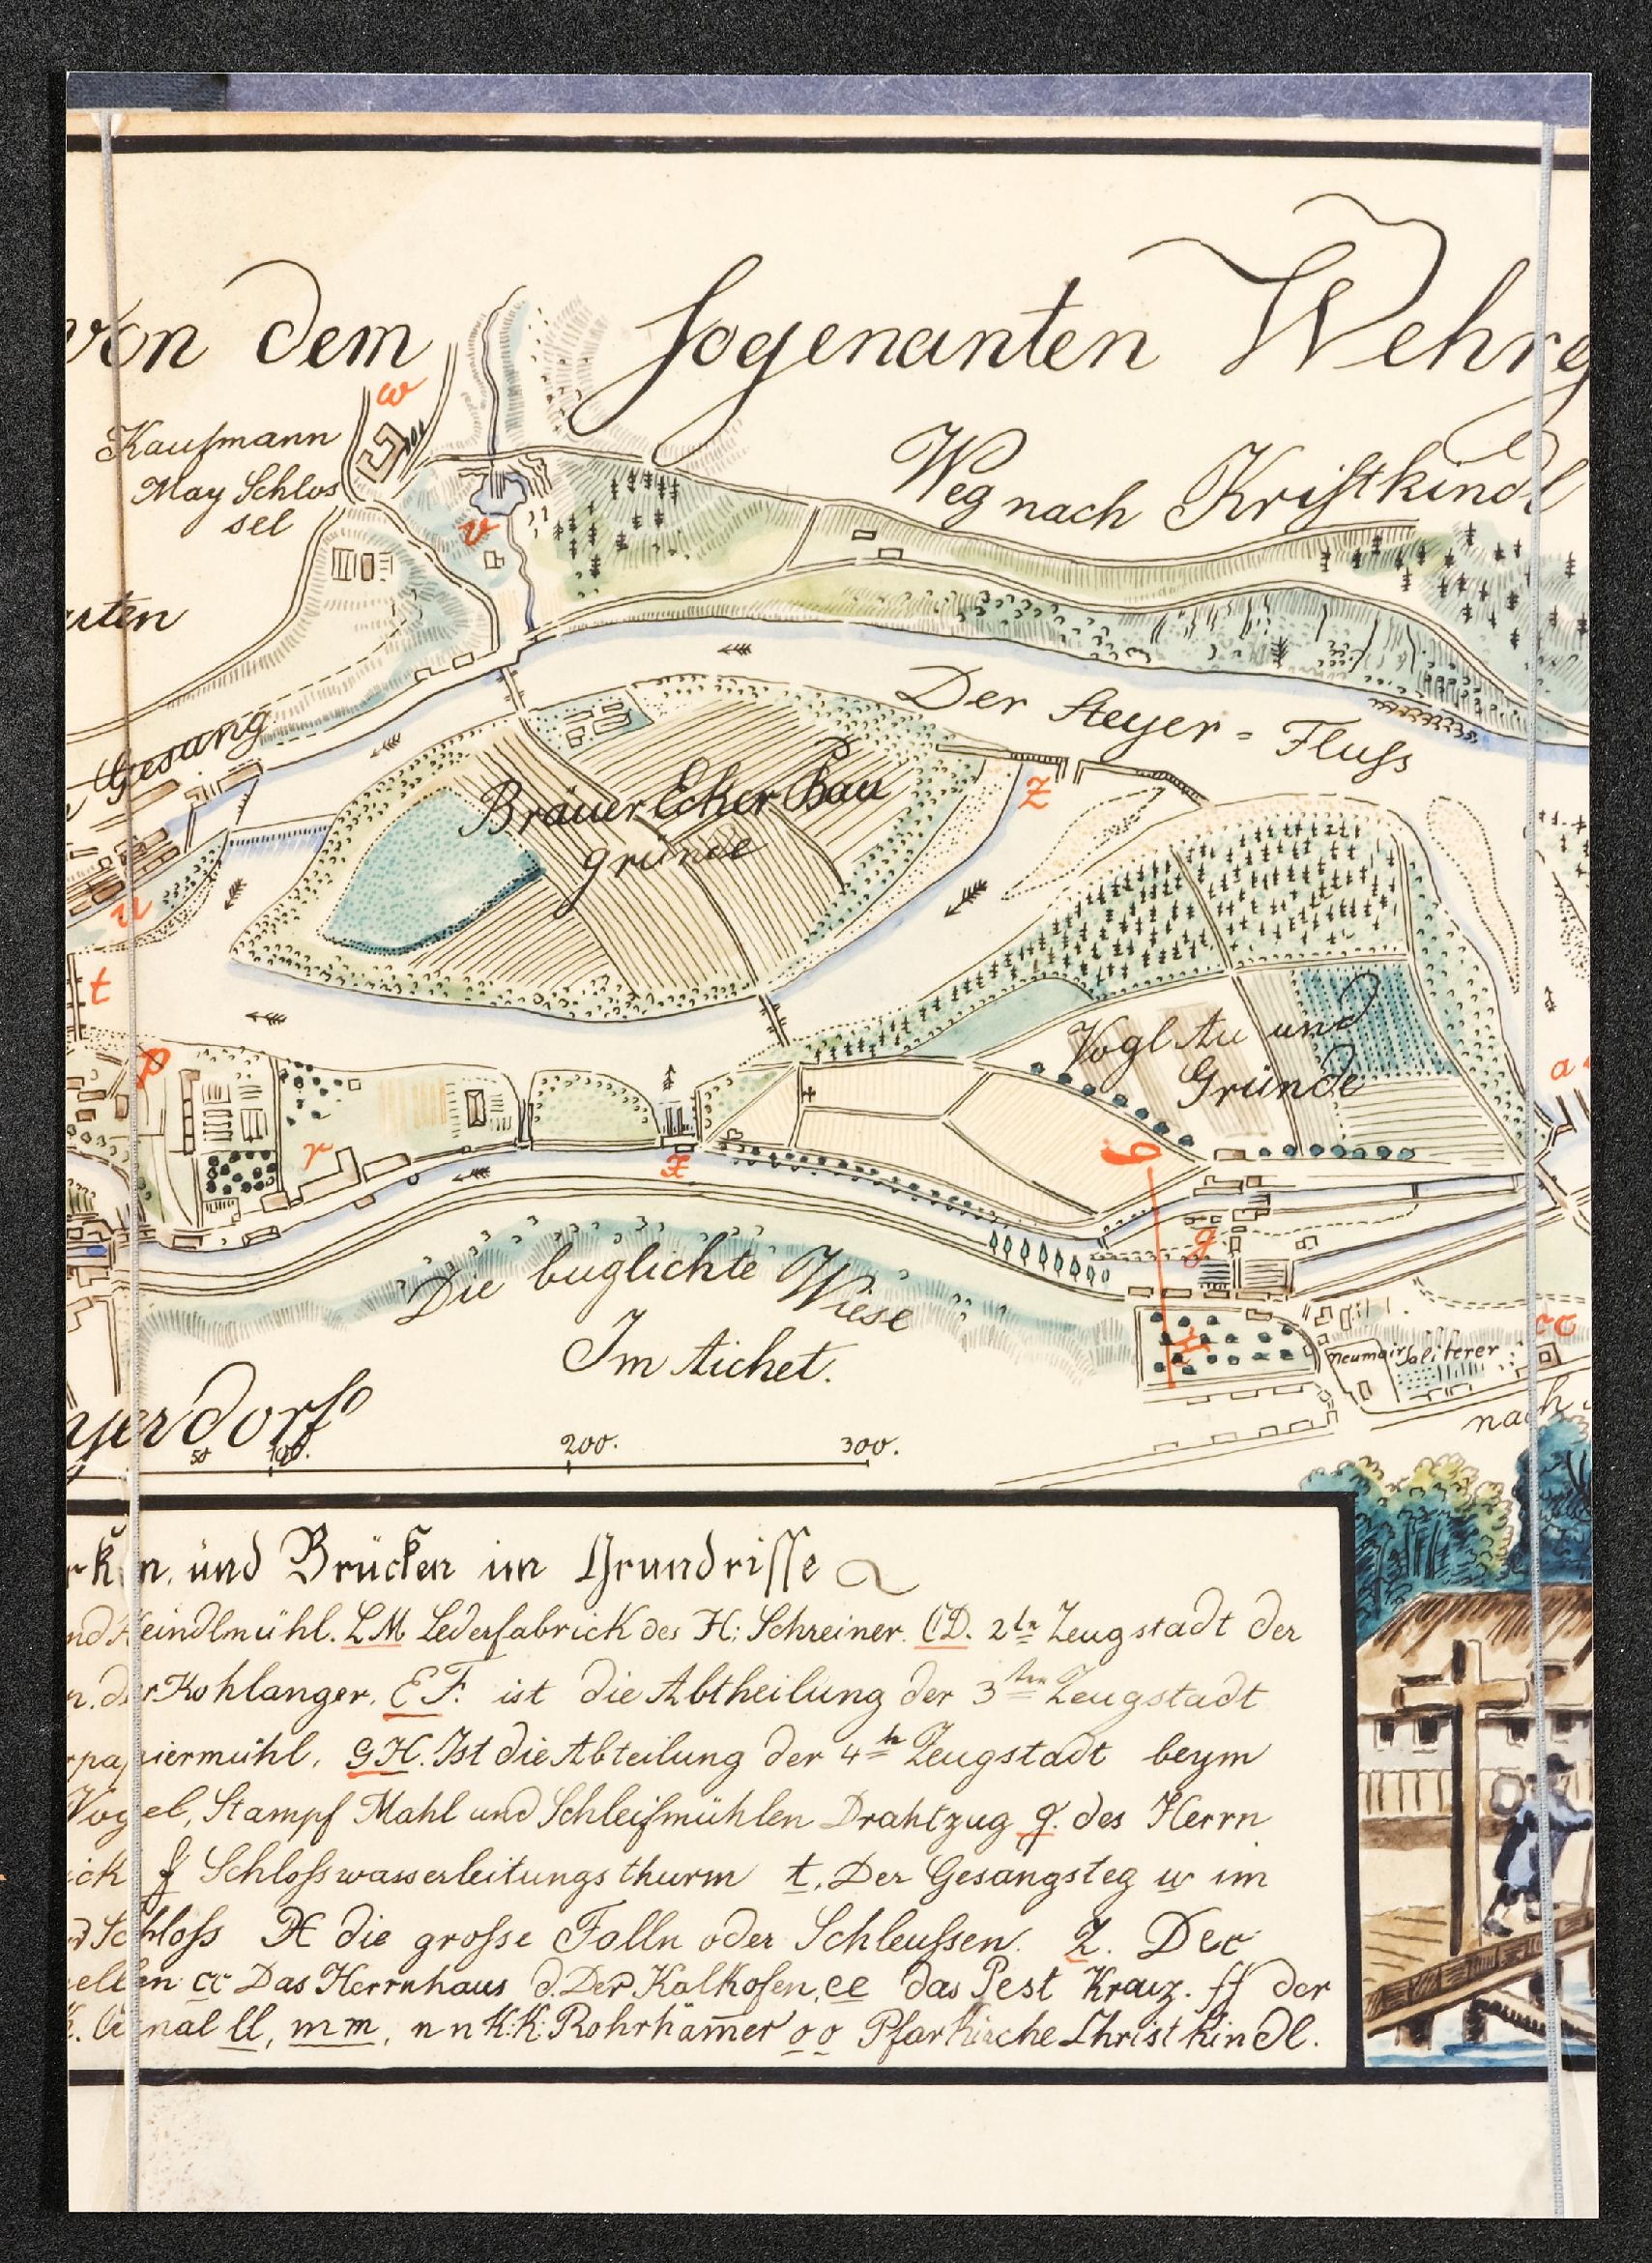 von dem sogenanten Wehrg
w
Kaufmann
May Schlos
sel
v
Weg nach Kristkindl
arten
Gesang
Der Steyer = Fluss
Z
Bräuer Ecker Bau
gründe
u
t
p
r
x
Vogl Au und
Gründe
a
G
g
H
Die buglichte Wiese
Im Aichet.
neumair Saliterer
cc
nach
yerdorf
50 100. 200. 300.
rken und Brücken im Grundrisse
nd Heindlmühl. LM Lederfabrick des H: Schreiner. CD. 2te Zeugstadt der
n. der Kohlanger. EF. ist die Abtheilung der 3ten Zeugstadt
rpapiermühl, GH. Ist die Abteilung der 4te Zeugstadt beym
Vogel, Stampf Mahl und Schleifmühlen Drahtzug g. des Herrn
ick f Schlosswasserleitungsthurm t. Der Gesangsteg w im
d Schloss X die grosse Falln oder Schleussen. Z. Der
ellen cc Das Herrnhaus d. Der Kalkofen, ee das Pest Kreuz. ff der
K. Canal ll, mm, nn K:K: Rohrhämer oo Pfarkirche Christkindl.